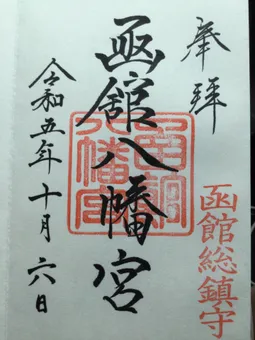 奉拝
函館総鎮守
函館八幡宮
令和五年十月六日